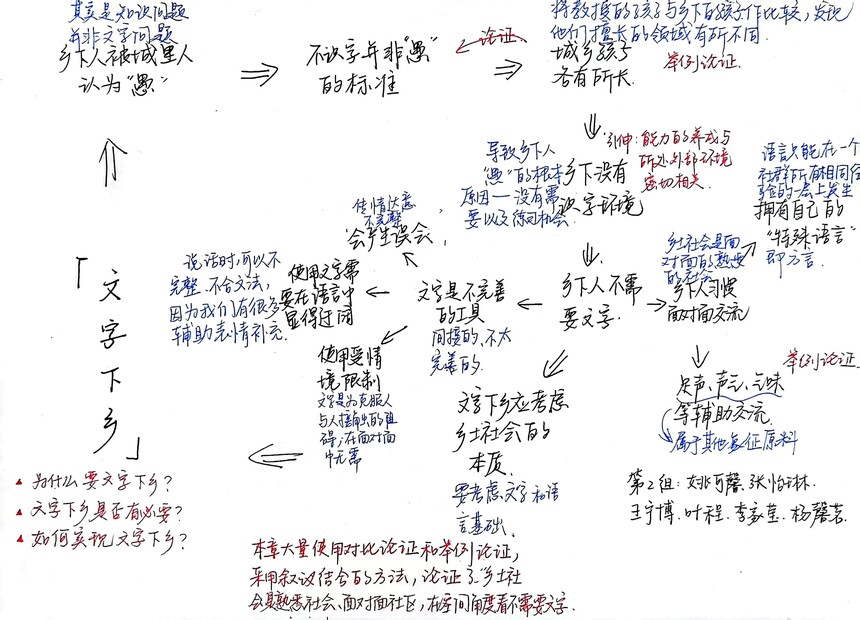 其实是知识问题
并非文字问题
乡下人被城里人
认为“愚”
不识字并非“愚”
的标准
论证
将教授的孩子与乡下的孩子作比较,发现
他们擅长的领域有所不同.
城乡孩子
各有所长
举例论证.
引伸:能力的养成与
所处外部环境
密切相关.
导致乡下人
“愚”的根本
原因——没有需
要以及练习机会.
乡下没有
识字环境
语言只能在一个
社群所有相同经
验的一层上发生
拥有自己的
“特殊语言”
即方言.
乡土社会是面
对面的熟悉
的社会
乡下人习惯
面对面交流
乡下人不需
要文字.
文字是不完善
的工具
间接的、不太
完善的.
传情达意
不完整
会产生误会.
使用文字需
要在语言中
显得迂回
说话时,可以不
完整、不合文法,
因为我们有很多
辅助表情补充.
使用受情
境限制
文字是为克服人
与人接触的阻
碍;在面对面
中无需
文字下乡应考虑
乡土社会的
本质.
要考虑文字和语
言基础.
举例论证.
足声、声气、气味
等辅助交流.
属于其他象征原料
「文字下乡」
▲ 为什么要文字下乡?
▲ 文字下乡是否有必要?
▲ 如何实现文字下乡?
第2组:姚可馨.张怡琳.
王宇博.叶程.李家莹.杨馨茗.
本章大量使用对比论证和举例论证,
采用叙议结合的方法,论证了“乡土社
会是熟悉社会、面对面社区,在空间角度看不需要文字.